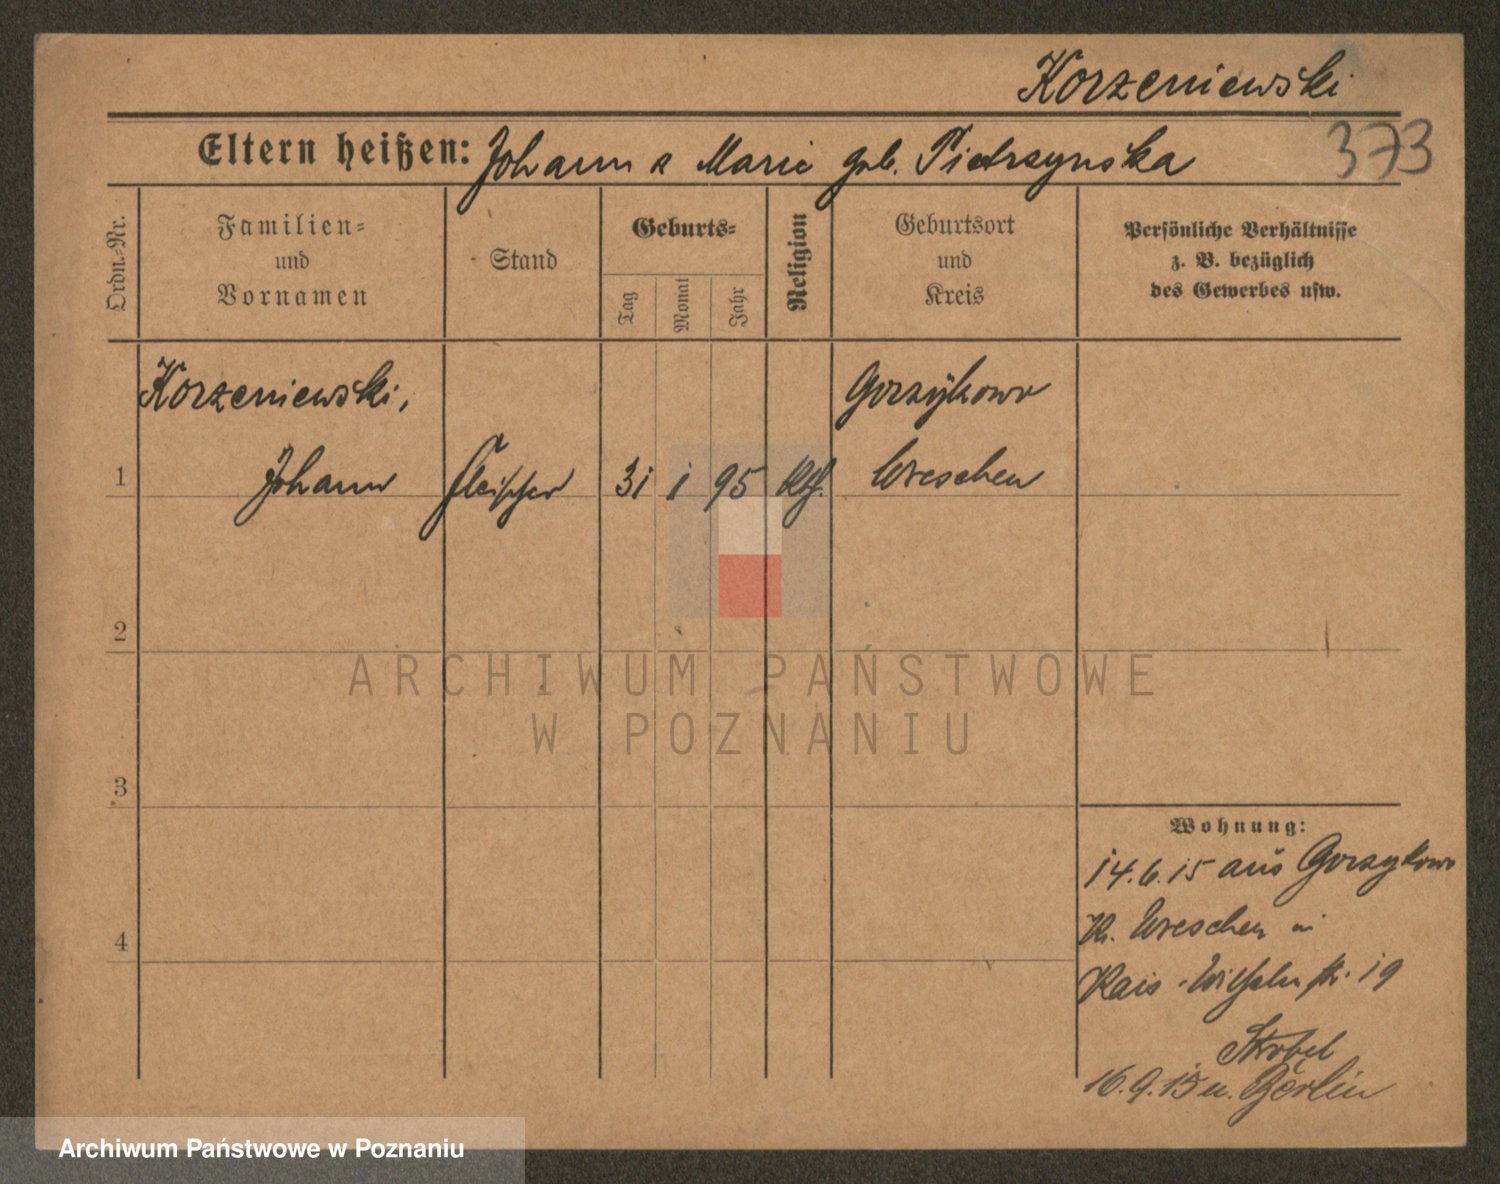 Korzeniewski
373
Eltern heißen: Johann & Marie geb. Pietrzynska
Ordn.=Nr.
Familien=
und
Vornamen
Stand
Geburts=
Tag
Monat
Jahr
Religion
Geburtsort
und
Kreis
Persönliche Verhältnisse
z. B. bezüglich
des Gewerbes usw.
Korzeniewski,
Gorzykowo
1 Johann Fleischer 31 1 95 kth. Wreschen
2
ARCHIWUM PAŃSTWOWE
W POZNANIU
3
Wohnung:
14.6.15 aus Gorzykowo
Kr. Wreschen in
4
Kais. Wilhelmstr. 19
Strobel
16.9.15 n. Berlin
Archiwum Państwowe w Poznaniu